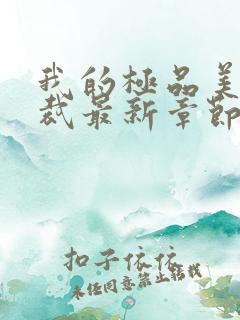 我的極品美
裁最新章節
扣子依依
未经同意禁止转载